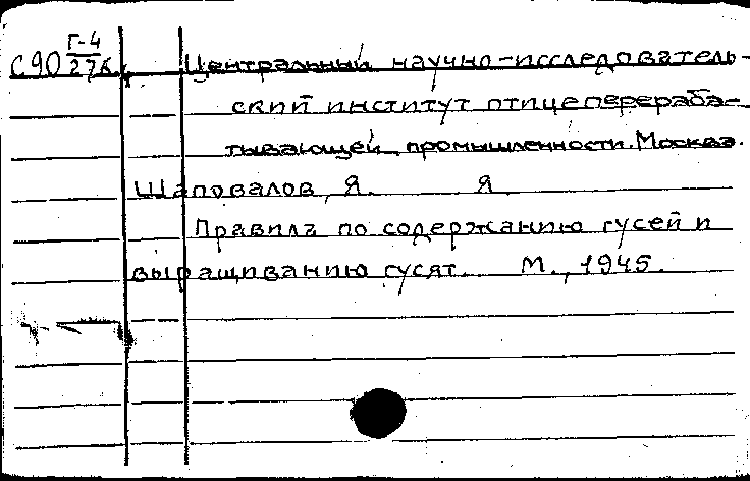 С90 Г-4/276
Центральный научно-исследователь-
ский институт птицеперераба-
тывающей промышленности. Москва.
Шаповалов, Я. Я
Правила по содержанию гусей и
выращиванию гусят. М., 1945.